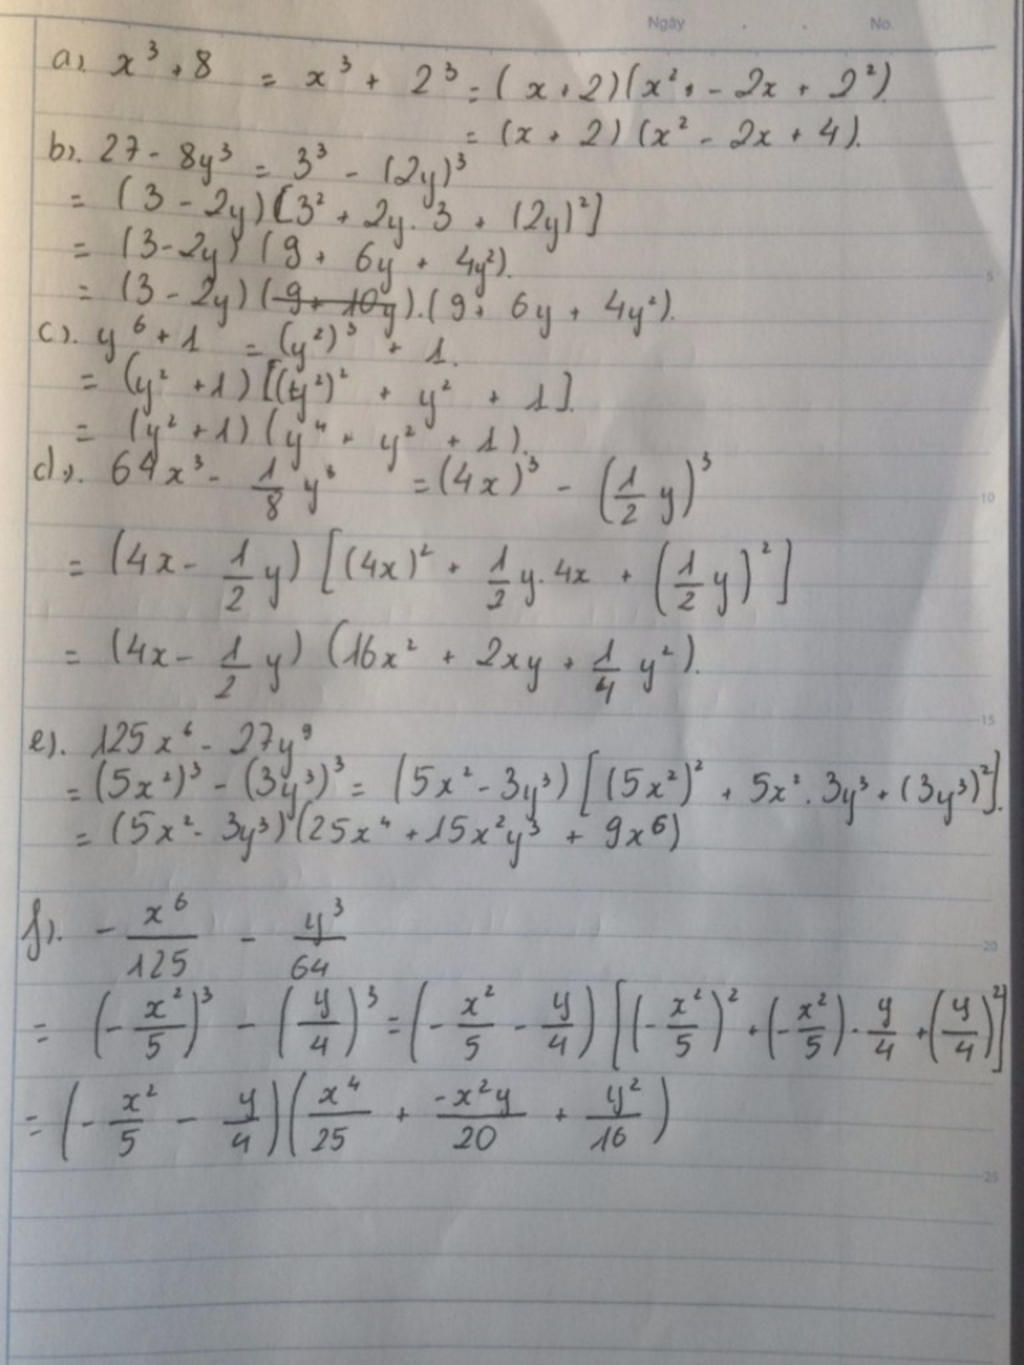 Ngày No.
a). x³ + 8 = x³ + 2³ = (x + 2)(x² + - 2x + 2²)
= (x + 2)(x² - 2x + 4).
b). 27 - 8y³ = 3³ - (2y)³
= (3 - 2y)[3² + 2y. 3 + (2y)²]
= (3 - 2y) (9 + 6y + 4y²).
= (3 - 2y)(9 + 10y).(9 + 6y + 4y²).
c). y⁶ + 1 = (y²)³ + 1.
= (y² + 1)[(y²)² + y² + 1].
= (y² + 1)(y⁴ + y² + 1).
d). 64x³ - 1/8 y³ = (4x)³ - (1/2 y)³
= (4x - 1/2 y) [(4x)² + 1/2 y. 4x + (1/2 y)²]
= (4x - 1/2 y) (16x² + 2xy + 1/4 y²).
e). 125x⁶ - 27y⁹
= (5x²)³ - (3y³)³ = (5x² - 3y³) [(5x²)² + 5x². 3y³ + (3y³)²].
= (5x² - 3y³)(25x⁴ + 15x²y³ + 9x⁶)
f). - x⁶/125 - y³/64
= (- x²/5)³ - (y/4)³ = (- x²/5 - y/4) [(- x²/5)² + (- x²/5) . y/4 + (y/4)²]
= (- x²/5 - y/4)(x⁴/25 + -x²y/20 + y²/16)
5
10
15
20
25